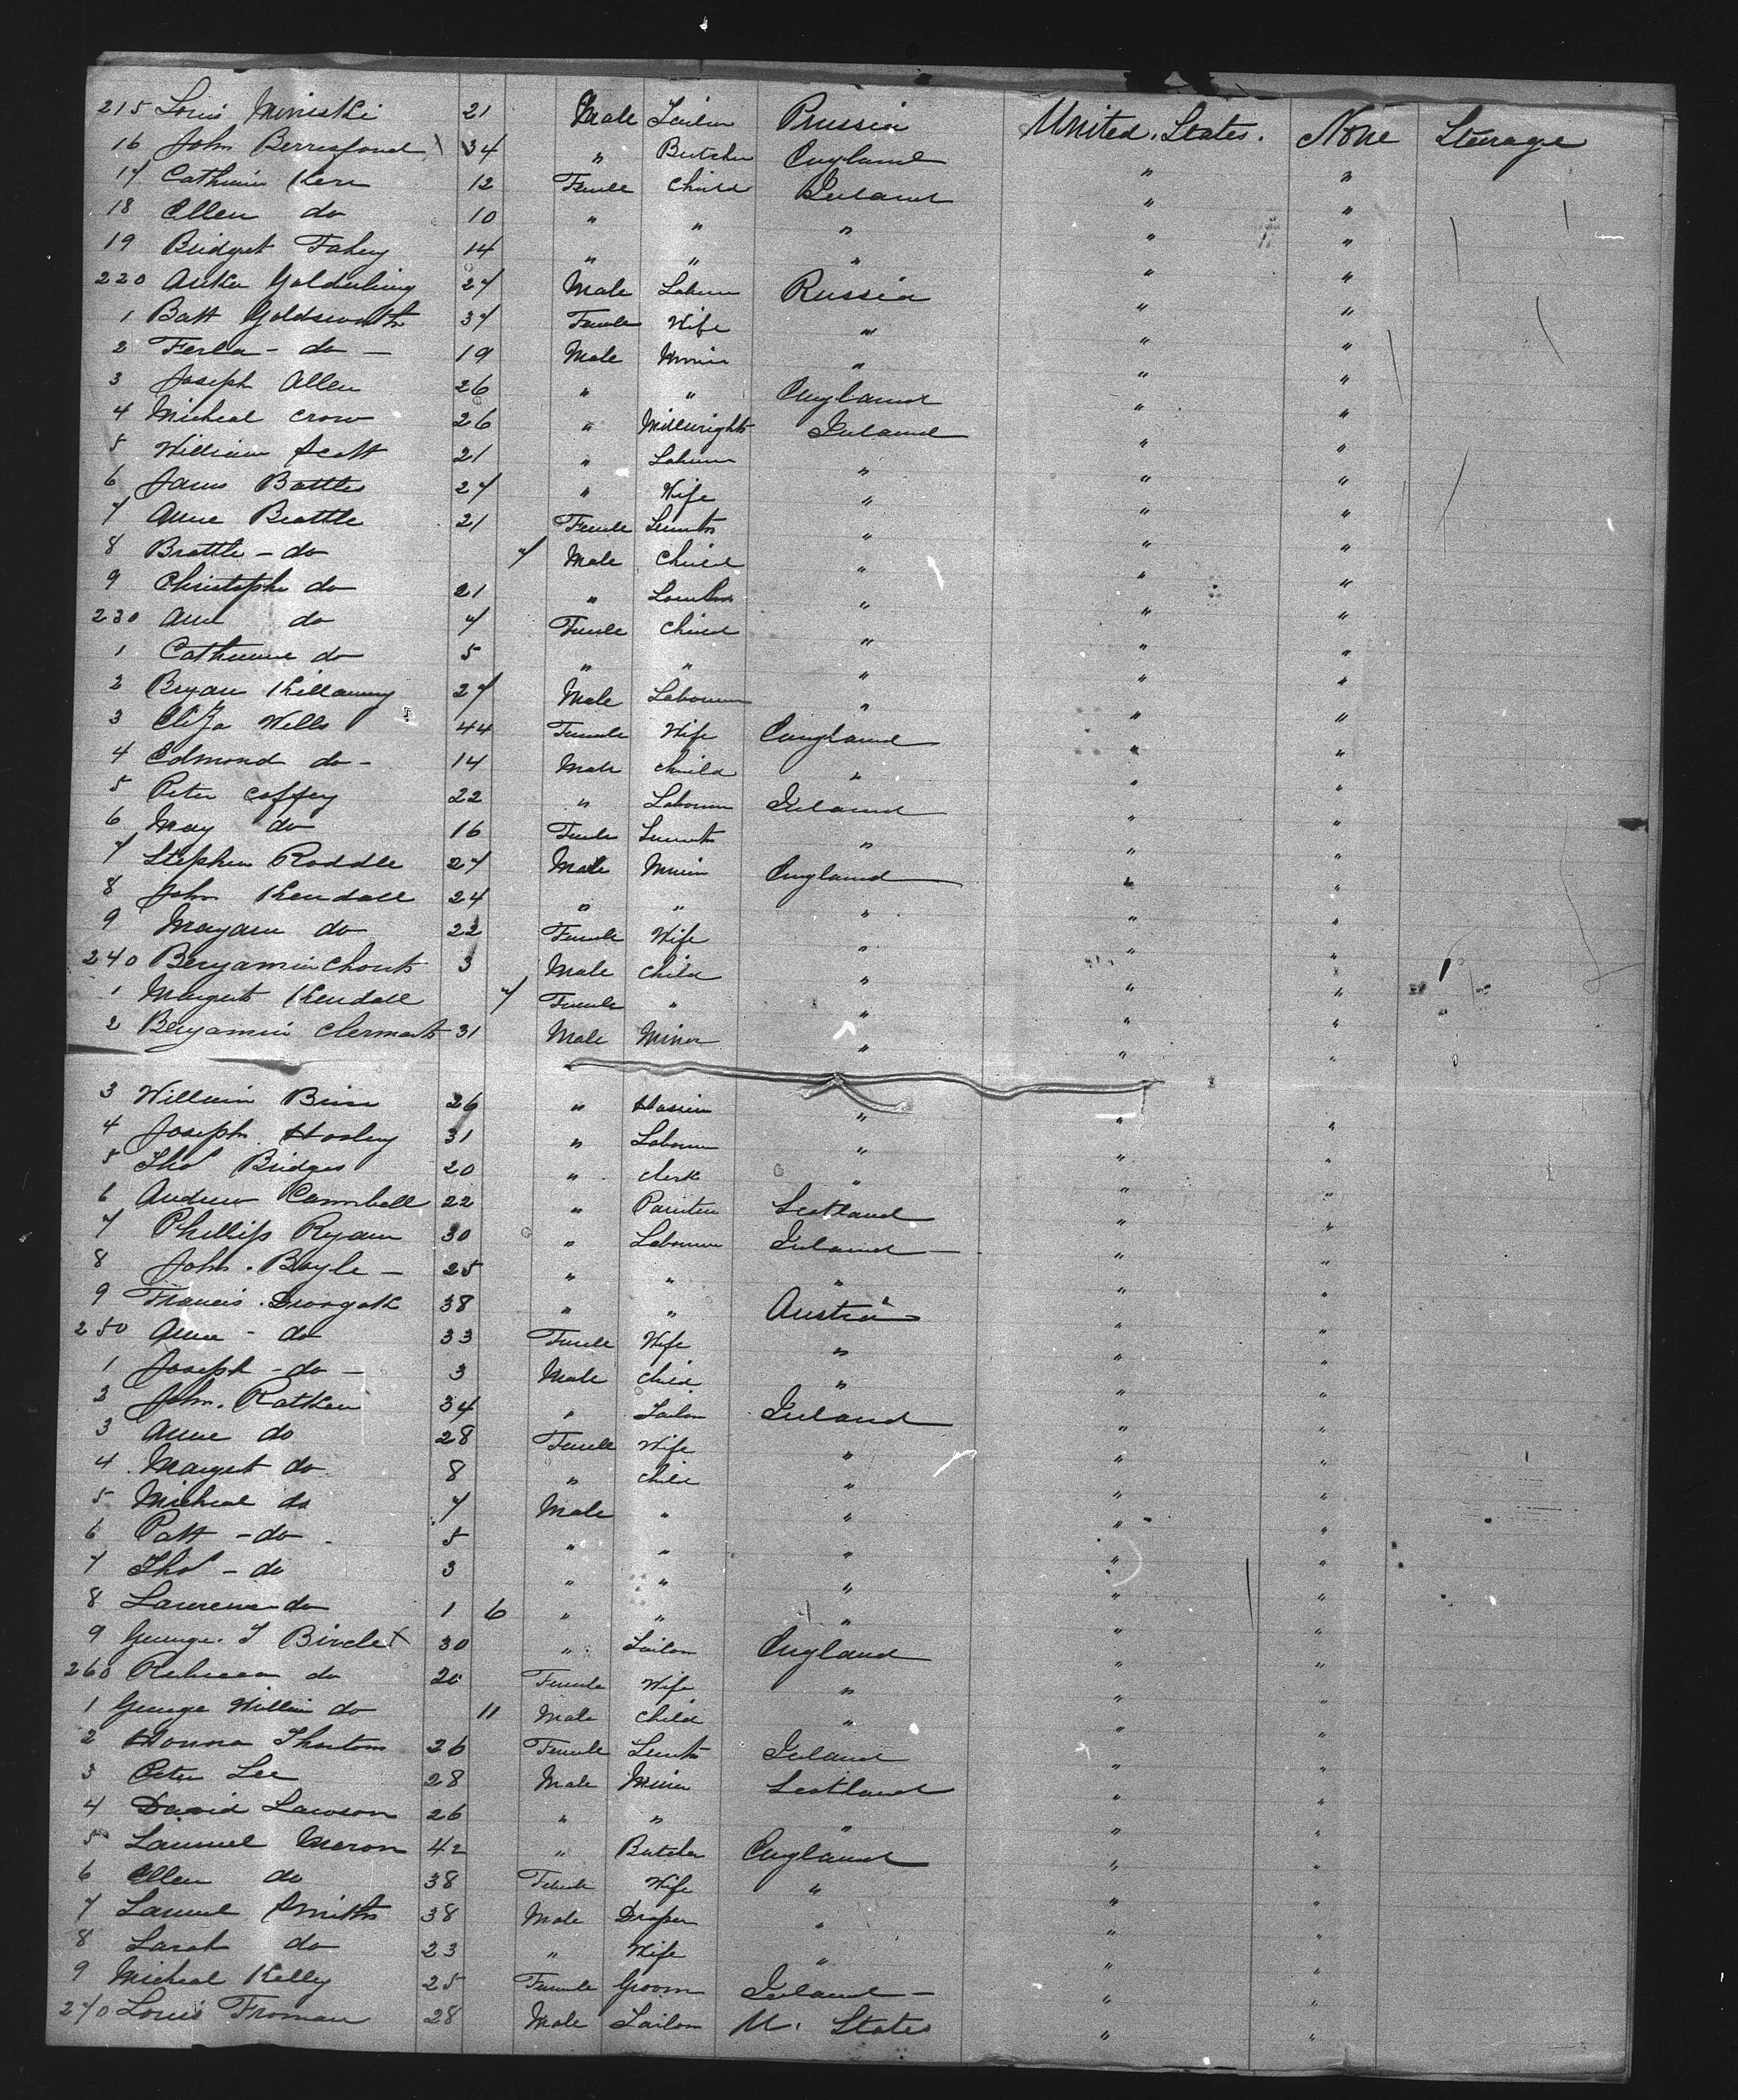 215 Louis Miniski 21 Male Tailor Prussia United States. None Steerage
16 John Berresford 34 " Butcher England " "
17 Catherine Kerr 12 Female Child Ireland " "
18 Ellen do 10 " " " " "
19 Bridget Fahey 14 " " " " "
220 27 Male Labourer Russia " "
1 Batt Goldsworth 37 Female Wife " " "
2 Ferla - do - 19 Male Miner " " "
3 Joseph Allen 26 " " England " "
4 Micheal Crow 26 " Millwright Ireland " "
5 William Scott 21 " Labourer " " "
6 James Battles 27 " Wife " " "
7 Anne Beattle 21 Female Servant " " "
8 Brattle - do 7 Male Child " " "
9 Christophe do 21 " " " "
230 Ann do 7 Female Child " " "
1 Catherine do 5 " " " " "
2 Bryan Killanny 27 Male Labourer " " "
3 Eliza Wells 44 Female Wife England " "
4 Edmond do - 14 Male Child " " "
5 Peter Coffey 22 " Labourer Ireland " "
6 May do 16 Female Servant " " "
7 Stephen Roddle 27 Male Miner England " "
8 John Kendall 24 " " " " "
9 Maryann do 22 Female Wife " " "
240 Benjamin Chouts 3 Male Child " " "
1 Margret Kendall 7 Female " " " "
2 Benjamin Clermarts 31 Male Minor " " "
3 William 26 " " " "
4 Joseph Hooley 31 " Labourer " " "
5 Thos Bridges 20 " Clerk " " "
6 Andrew Cambell 22 " Painter Scotland " "
7 Phillip Ryan 30 " Labourer Ireland - " "
8 John. Boyle - 25 " " " " "
9 Francis. Dworgak 38 " " Austria " "
250 Anne - do 33 Female Wife " " "
1 Joseph - do - 3 Male Child " " "
2 John. Ratken 34 " Tailor Ireland " "
3 Anne do 28 Female Wife " " "
4 Margret do 8 " Child " " "
5 Micheal do 7 Male " " " "
6 Patt - do 5 " " " " "
7 Thos - do 3 " " " " "
8 Laurence do 1 6 " " " " "
9 George. T Birclet 30 " Tailor England " "
260 Rebecca do 20 Female Wife " " "
1 George William do 11 Male Child " " "
2 Honora Thortom 26 Female Servant Ireland " "
3 Peter Lee 28 Male Miner Scotland " "
4 David Lawson 26 " " " " "
5 Samuel Meron 42 " Butcher England " "
6 Ellen do 38 Female Wife " " "
7 Samuel Smith 38 Male Draper " " "
8 Sarah do 23 " Wife " " "
9 Micheal Kelley 25 Female Groom Ireland - " "
270 Louis Froman 28 Male Tailor U. States " "